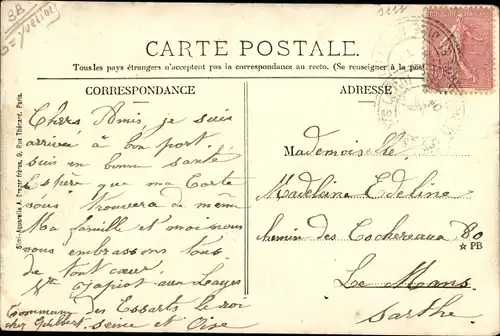 3B
= Yvelines
CARTE POSTALE.
Tous les pays étrangers n'acceptent pas la correspondance au recto. (Se renseigner à la post
CORRESPONDANCE
ADRESSE
Chers Amis je suis
arrivée à bon port
suis en bonne santé
Espère que ma Carte
vous trouvera de meme
Ma famille et moi nous
vous embrassons tous
de tout cœur.
aux Loges
Commune des Essarts le roi
chez Guilbert Seine et Oise
Mademoiselle
Madeleine Edeline
chemin des Cochereaux 80
Le Mans
Sarthe
★ PB
Simi-Aquarelle A. Breger frères, 9, Rue Thénard, Paris.